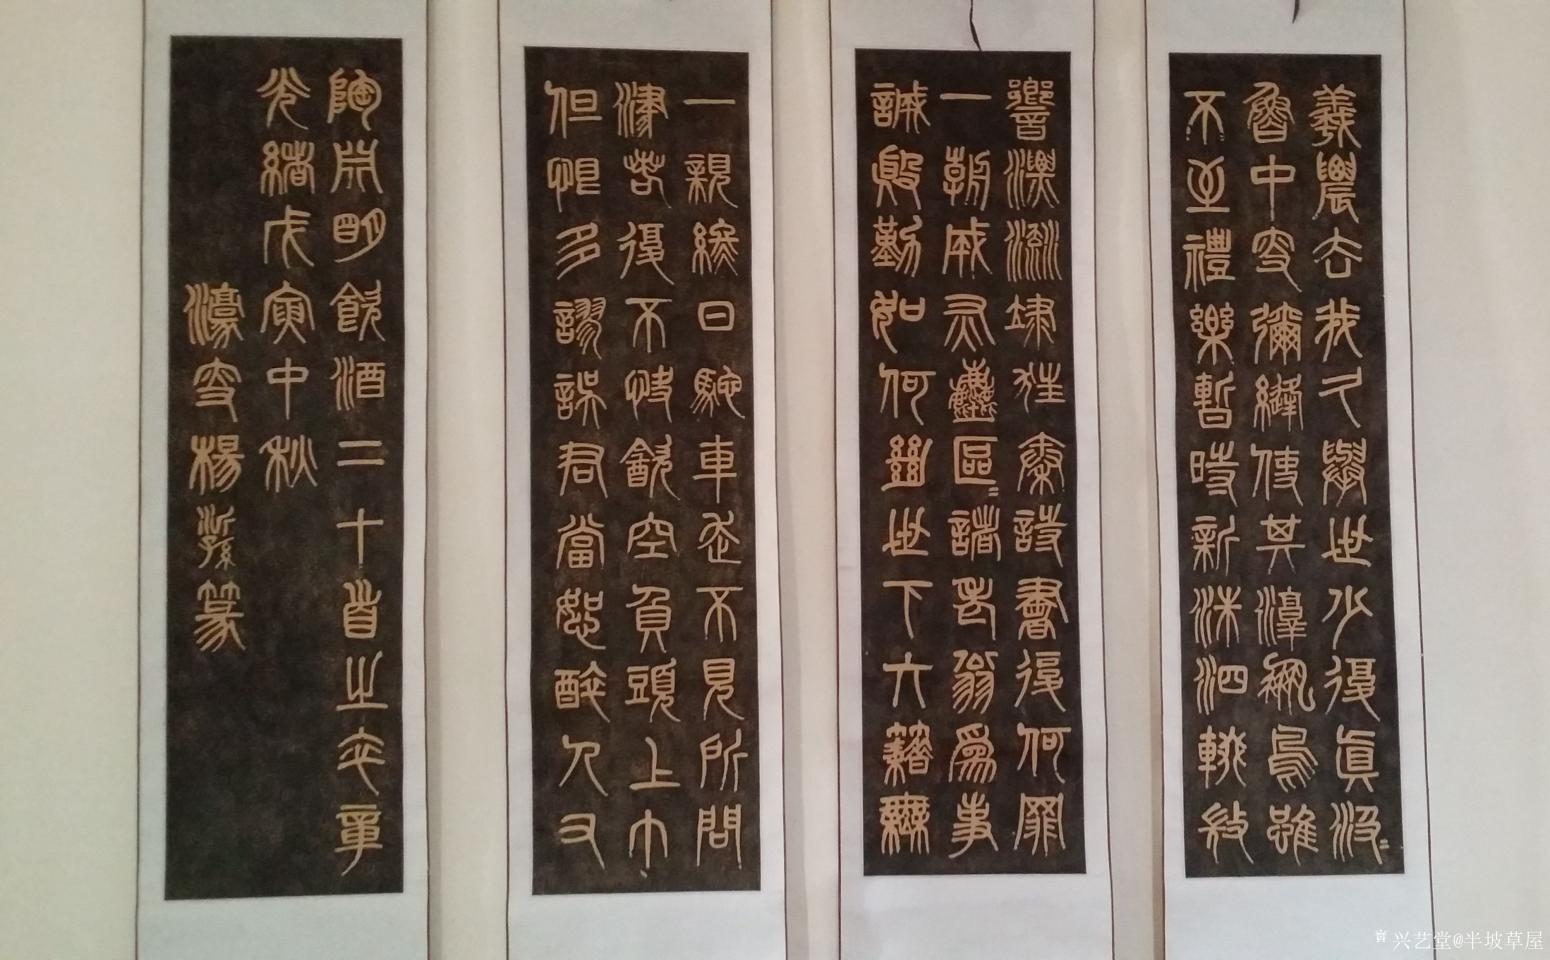 羲農去我久舉世少復真汲〻
魯中叟彌縫使其淳鳳鳥雖
不至禮樂暫時新洙泗輟微
響漂流逮狂秦詩書復何罪
一朝成灰塵區〻諸老翁為事
誠殷勤如何絕世下六籍無
一親終日馳車走不見所問
津若復不快飲空負頭上巾
但恨多謬誤君當恕醉人又
陶淵明飲酒二十首之卒章
光緒戊寅中秋
濠叟楊沂孫篆
兴艺堂@半坡草屋